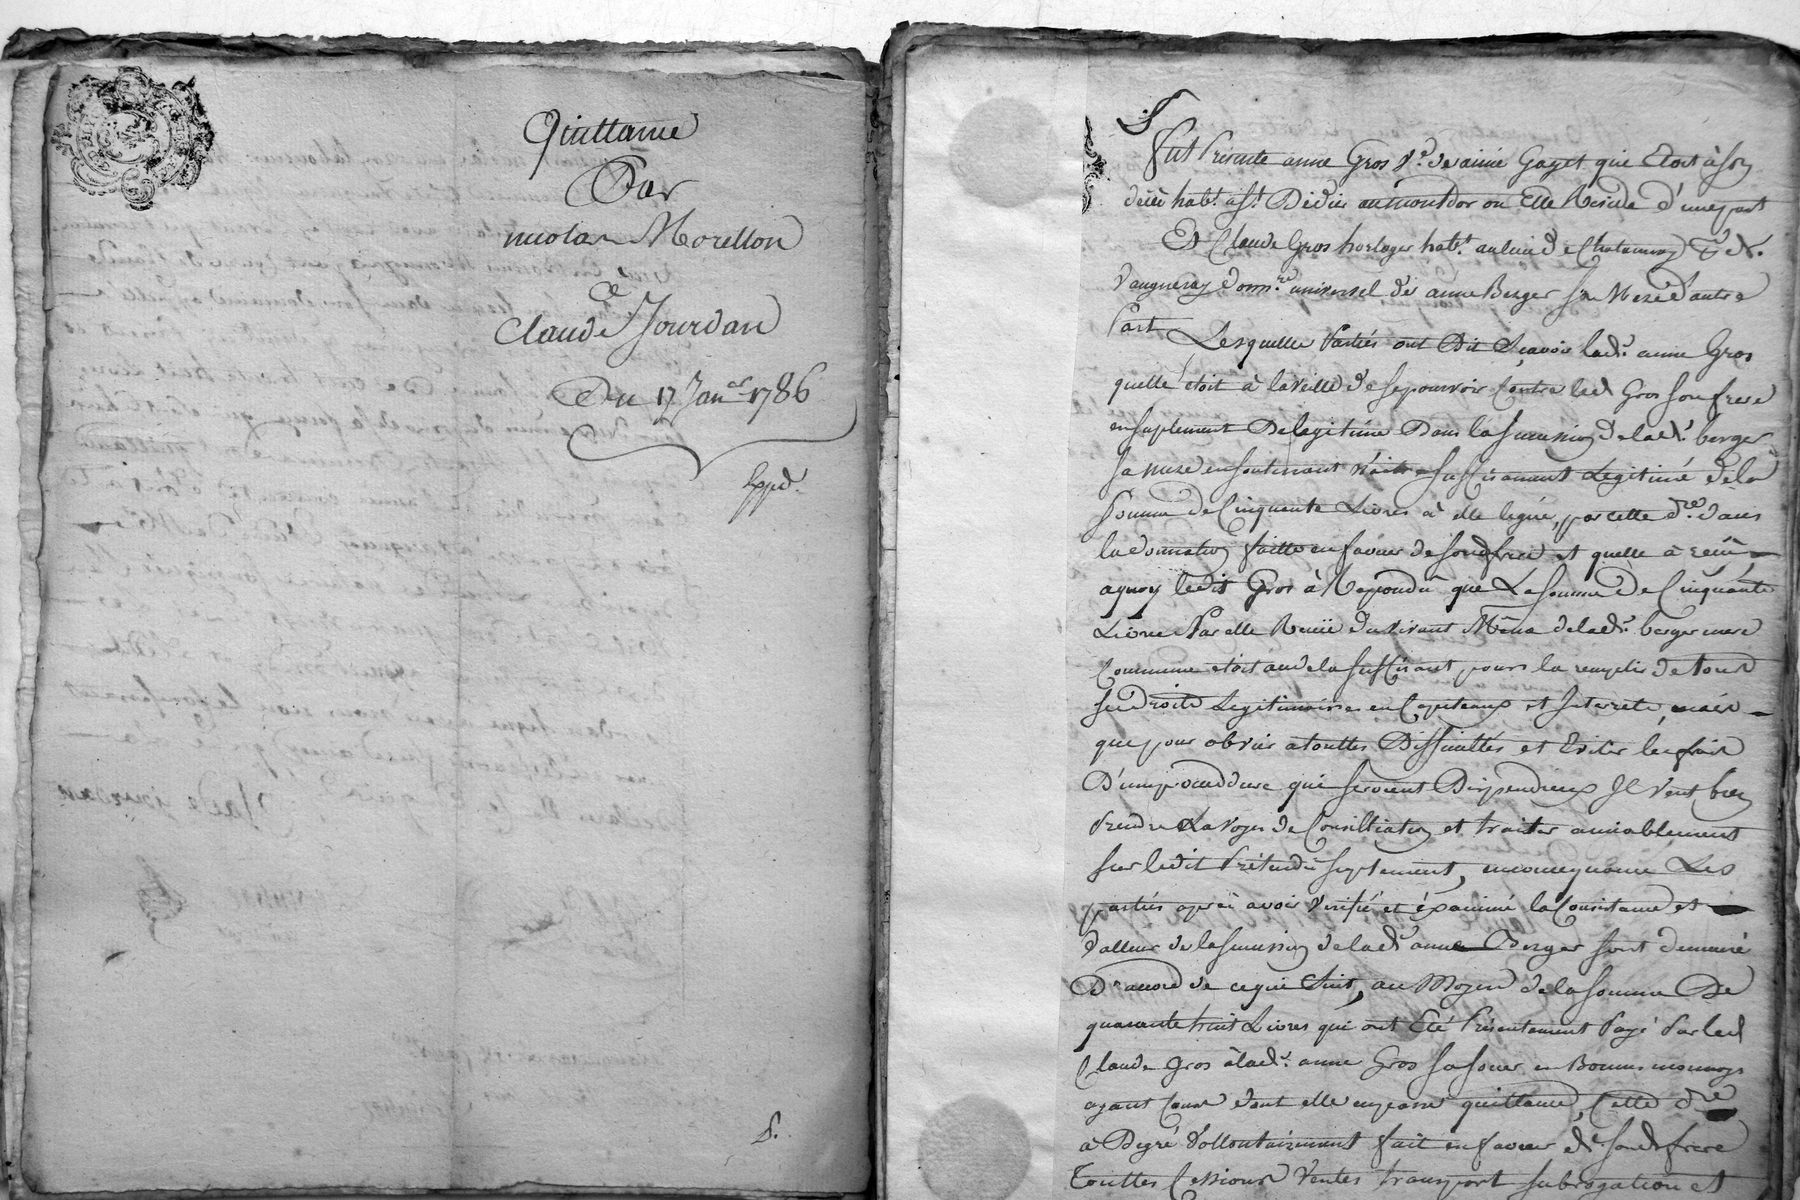 Quittance
Par
nicolas Morellon
a
Claude Jourdan
Du 17 Janer 1786
Exped.
S.
S
fut Presente anne Gros Ve. de aimé Gayet qui Etoit à son
décè habt. a St. Didier au montdor ou Elle Reside d'une part
Et Claude Gros horloger habt. au lieu de
Vaugneray donre. universel de anne Berger sa Mere d'autre
Part
Lesquelle Parties ont Dit Scavoir lade. anne Gros
quelle étoit à la veille de se pourvoir Contre led Gros son frere
en suplement De legitime Dans la succession de lade. berger
sa mere en soutenant n'être suffisament Legitimé de la
somme de Cinquante Livres à elle légué, par cette dre. dans
la donnation faitte en faveur de sond frere et quelle à reçuë
aquoy ledit Gros à Repondû que La somme de Cinquante
Livres Par elle Reçuë du vivant Même delade. berger mere
Commune etoit au dela suffisant pour la remplir de tous
ses droits Legitimaires en Capiteaux et Interrets, mais
que pour obvier a touttes Difficultés et Eviter les frais
D'une proceddure qui seroient Dispendieux Il veut bien
Prendre La voye de Conciliation et traiter amiablement
sur ledit Prétendu suplement, en consequence Les
parties après avoir verifié et éxaminé la Consistance et
valleur de la succession de lade. anne Berger sont demeuré
D'accord de ce qui suit, au Moyen de la somme De
quarante huit Livres qui ont Eté Présentement Payé Par led
Claude Gros à lade. anne Gros sa soeur en Bonnes monnoye
ayant Cour dont elle en passe quittance, Cette dre.
à De gré Vollontairement fait en faveur de sond frere
Touttes Cessions Ventes transport subrogation et